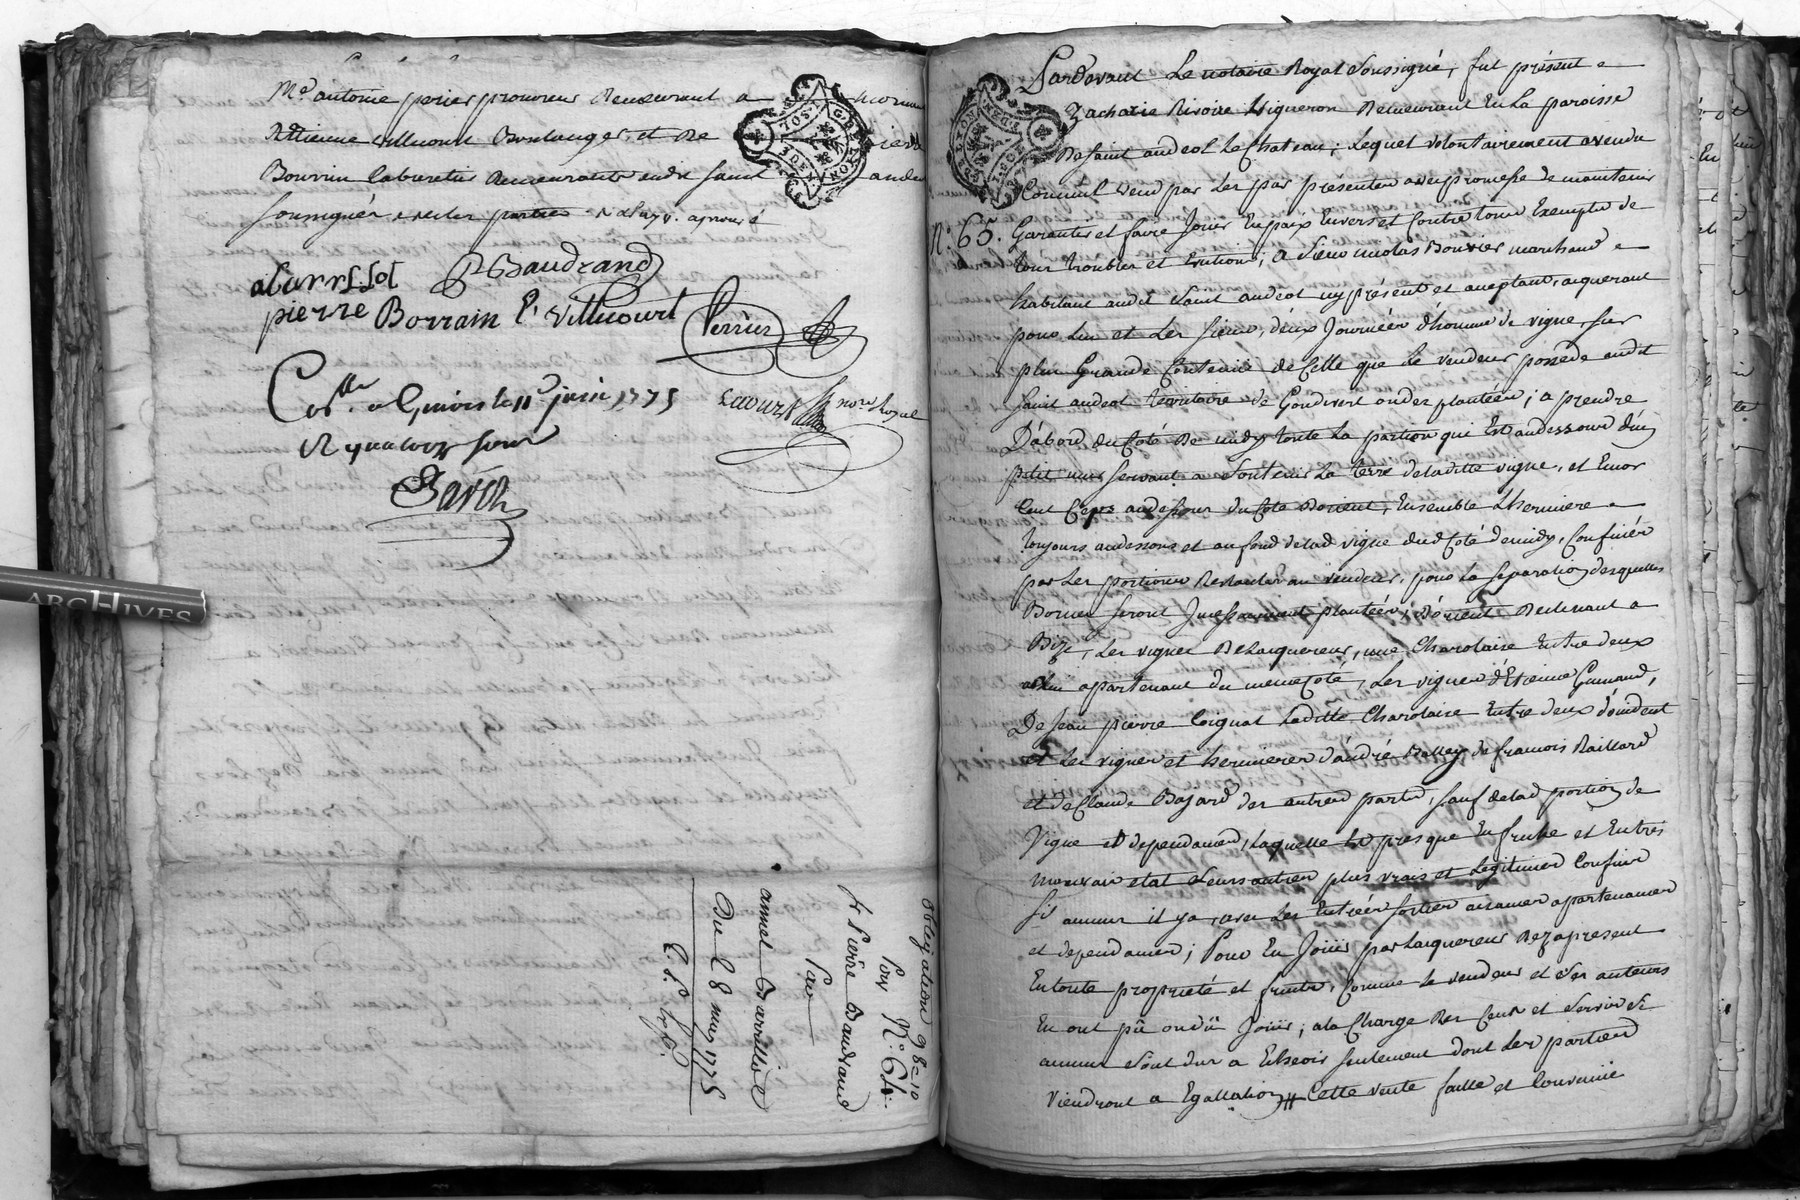 Me antoine perier procureur demeurant a
Ettienne villicourt Boulanger, et de
Bourrin Cabaretier demeurants audit saint
soussignés avec les parties
abarrillot
P Baudrand
pierre Borrain E. Villicourt
Perrier
Collé a Givors le 11e juin 1775
R quatorze sous
notre Royal
Savoy
ARCHIVES
obligation 98-10
Pour N.° 64.
Sr Pierre Baudrand
Par
annet Barrillot
Du 28 may 1775
Pardevant Le notaire Royal soussigné, fut présent
Zacharie Rivoire vigneron Demeurant En la paroisse
De saint andeol le Chateau; Lequel volontairement a vendu
Comme il vend par les presentes avec promesse de maintenir
N.° 65. Garantir et faire Jouir En paix Envers et Contre tous Exempte de
tous troubles et Evictions; a sieur nicolas Bouvier marchand
habitant audit saint andeol icy présent et aceptant, aquereur
pour Lui et Les siens, deux Journées d'homme de vigne, sur
plus Grande Contenüe de Celle que le vendeur possede audit
saint andeol territoire de
D'abord du Coté de midy toute La portion qui Est audessous d'un
petit mur servant a soutenir La terre de laditte vigne, et Encor
Cent Ceps audessous du Coté d'orient, Ensemble L'hermiere
toujours audessous et au fond de lad vigne dud Coté de midy, Confinés
par Les portions Restantes au vendeur, pour la separation desquelles
Bornes seront Incessamment plantées; D'orient Declinant a
Bize, Les vignes De Lacquereur, une Charolaire Entre deux
apartenant du meme Coté, Les vignes d'Etienne Guinand,
De Jean pierre Coignat Laditte Charolaire Entre deux d'ôccident
et Les vignes et hermieres d'andré Balley de francois Raillard
et de Claude Bajard des autres parts, sauf de lad portion de
Vigne et dependances, Laquelle Est presque En friche et En tres
mauvais etat Leurs autres plus vrais et Legitimes Confins
si aucuns il y a, avec Les Entrées sorties aisances apartenances
et dependances; Pour En Joüir par Lacquereur Dez apresent
En toute proprieté et fruits, Comme le vendeur et ses auteurs
En ont pû ou dû Joüir; a la Charge Des Cens et Servis Si
aucuns sont dus a Echeoir seulement dont Les parties
viendront a Egallation // Cette vente faitte et Convenüe